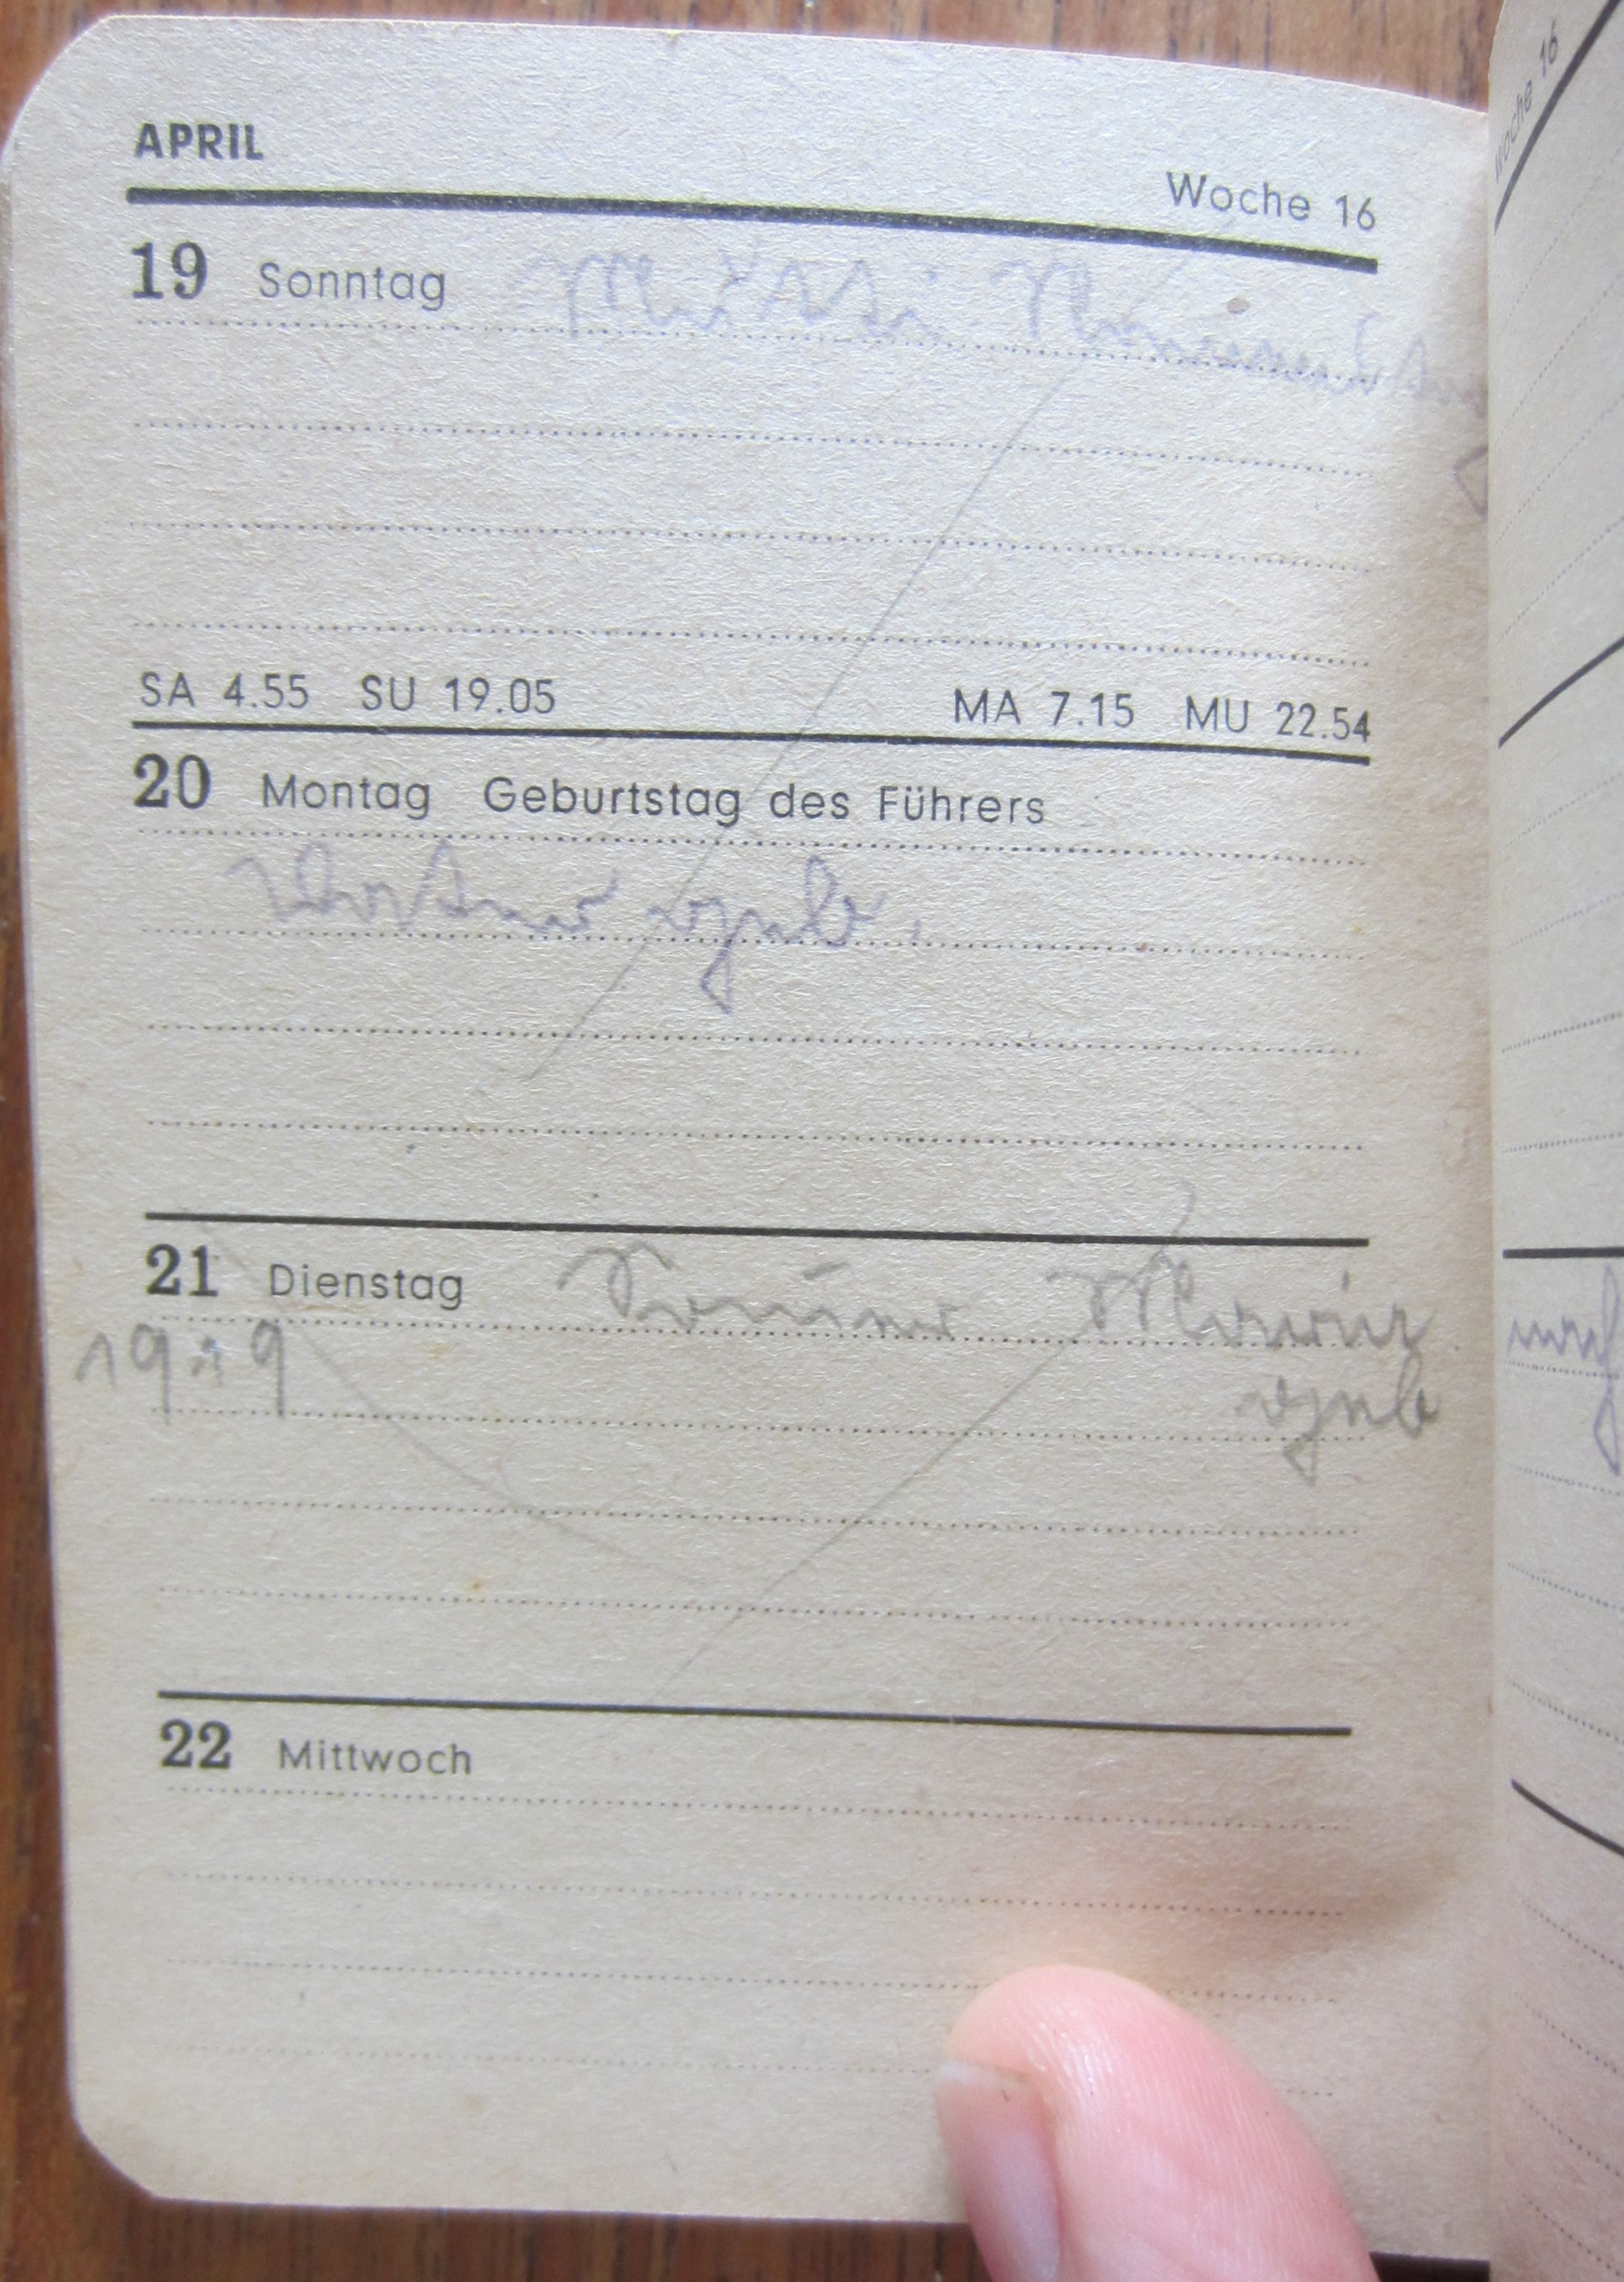 APRIL
Woche 16
19 Sonntag
SA 4.55 SU 19.05 MA 7.15 MU 22.54
20 Montag Geburtstag des Führers
Vater geb.
21 Dienstag Marie
geb
22 Mittwoch
Woche 16